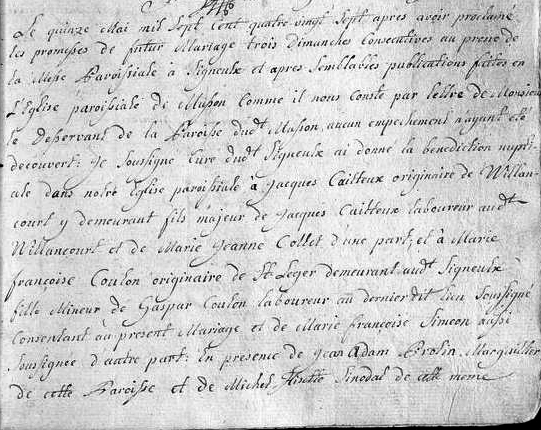 Le quinze Mai mil Sept Cent quatre vingt Sept apres avoir proclamé
les promesses de futur Mariage trois Dimanches Consecutives au prone de
la Messe Paroissiale à Signeulx et apres Semblables publications faites en
L'Eglise paroissiale de Musson Comme il nous Conste par lettre de Monsieur
le Deservant de la Paroisse dudt Musson aucun empechement n'ayant été
decouvert: Je Soussigné Curé dudt Signeulx ai donné la benediction nupti-
ale dans notre Eglise paroissiale à Jacques Cailteux originaire de Willan-
court y demeurant fils majeur de Jacques Cailteux laboureur audt
Willancourt et de Marie Jeanne Collet d'une part; et à Marie
françoise Coulon originaire de St Leger demeurant audt Signeulx
fille Mineur de Gaspar Coulon laboureur au dernier dit lieu Soussigné
Consentant au present Mariage et de Marie françoise Simeon aussi
Soussignée d'autre part: En presence de Jean Adam Marguillier
de cette Paroisse et de Michel Sinodal de cette meme